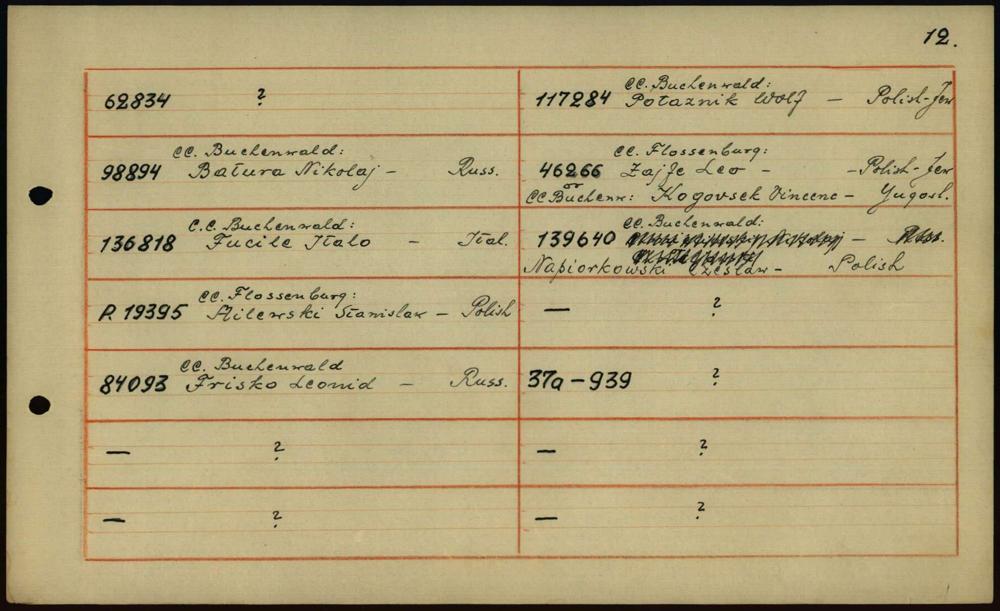 12.
62834 ?
CC. Buchenwald:
117284 Potaznik Wolf — Polish-Jew
CC. Buchenwald:
98894 Batura Nikolaj - Russ.
CC. Flossenburg:
46266 Zajfe Leo - - Polish-Jew
or
CC Buchenw: Kogovsek Vincenc - Yugosl.
C.C. Buchenwald:
136818 Fucile Italo — Ital.
CC. Buchenwald:
139640 —
Napiorkowski Czeslaw - Polish
CC. Flossenburg:
P. 19395 Milewski Stanislaw - Polish
— ?
CC. Buchenwald
84093 Frisko Leonid — Russ.
37a-939 ?
— ?
— ?
— ?
— ?